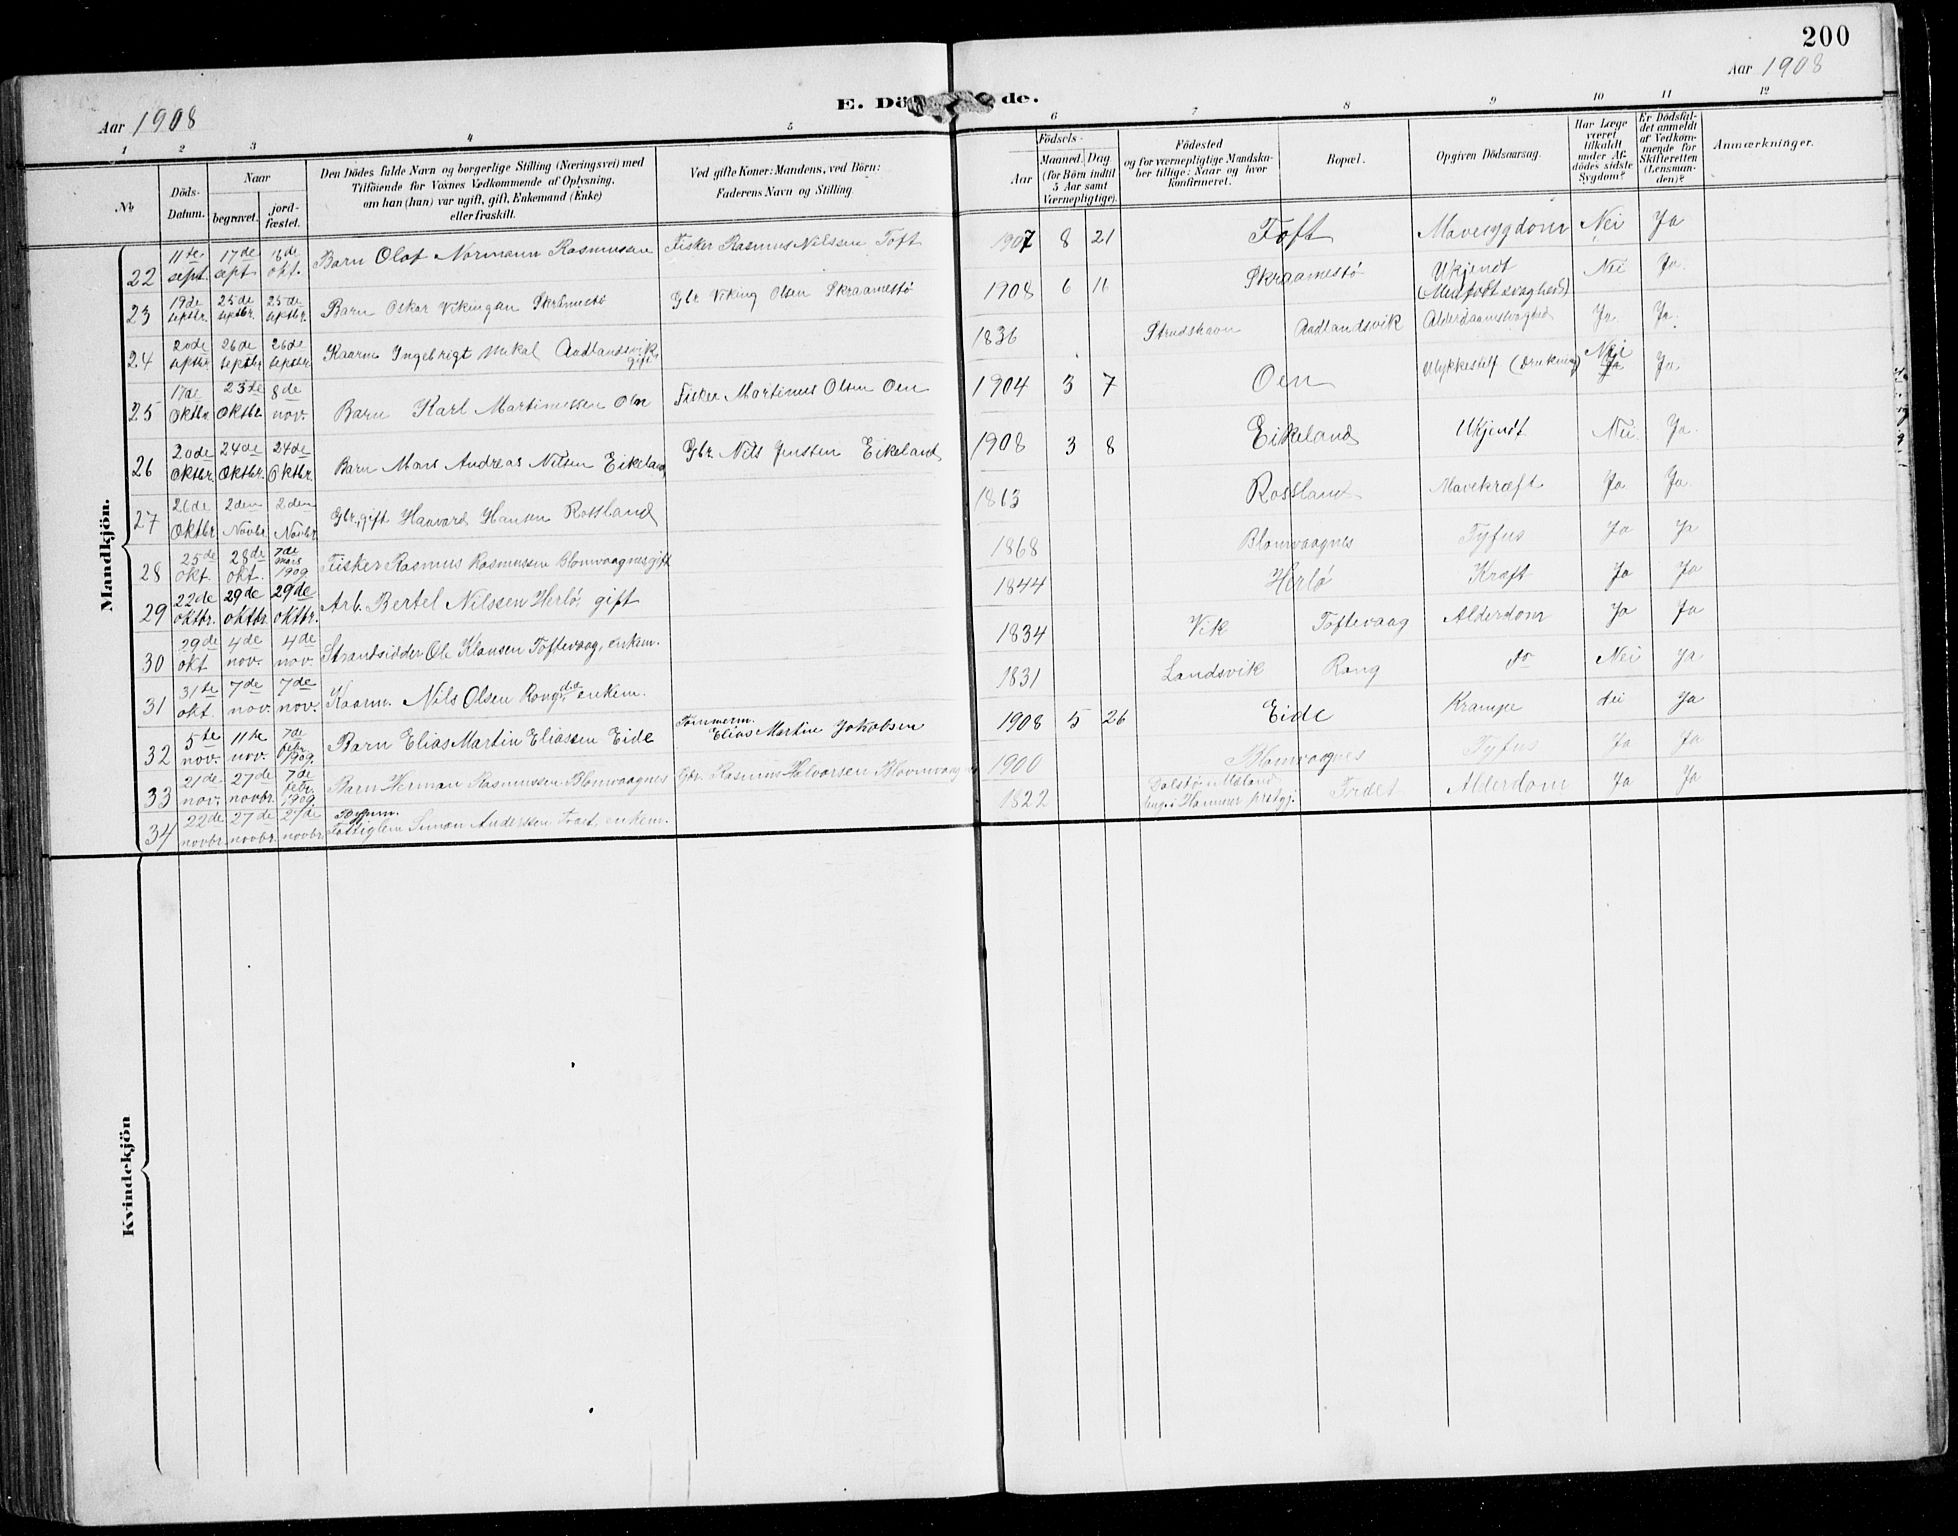 200
Aar 1908
Aar 1908
E. Dö de.
1 2 3 4 5 6 7 8 9 10 11 12
No
Döds-Datum.
Naar
begravet.
jord-fæstet.
Den Dödes fulde Navn og borgerlige Stilling (Næringsvei) med
Tilföiende for Voxnes Vedkommende af Oplysning,
om han (hun) var ugift, gift, Enkemand (Enke)
eller fraskilt.
Ved gifte Koner: Mandens, ved Börn:
Faderens Navn og Stilling
Födsels-
Aar
Maaned. Dag
(for Börn indtil
5 Aar samt
Værnepligtige).
Födested
og for værnepligtige Mandska-
ber tillige: Naar og hvor
konfirmeret.
Bopæl.
Opgiven Dödsaarsag.
Har Læge
været
tilkaldt
under Af-
dödes sidste
Sygdom?
Er Dödsfal-
det anmeldt
af Vedkom-
mende for
Skifteretten
(Lensman-
den)?
Anmærkninger.
Mandkjön.
22 11te sept. 17de sept 18de okt. Barn Olaf Normann Rasmussen Fisker Rasmus Nilssen Toft 1907 8 21 Toft Mavesygdom Nei Ja
23 19de septbr. 25de septbr. 25de septbr. Barn Oskar Vikingsen Skråmestø Gbr Viking Olsen Skraamestø 1908 6 16 Skraamestø Ukjendt (Medfødt svaghed) Nei Ja
24 20de septbr 26de septbr 26de septbr Kaarm Ingebrigt Mikal Aadlandsvik gift 1836 Aadlandsvik Alderdomssvaghed Ja Ja
25 17de Oktbr 23de Oktbr 8de nov. Barn Karl Martinussen Oen Fisker Martinus Olsen Oen 1904 3 7 Oen Ulykkestilf (Drukning) Nei Ja
26 20de Oktbr. 24de Oktbr. 24de Oktbr. Barn Mons Andreas Nilsen Eikeland Gbr. Nils Jensten Eikeland 1908 3 8 Eikeland Ukjendt Nei Ja
27 26de Oktbr 2den Novbr 2den Novbr Gbr. gift Haavard Hansen Rossland 1863 Rossland Mavekræft Ja Ja
28 25de okt. 28de okt. 7de mars 1909 Fisker Rasmus Rasmussen Blomvaagnes gift 1868 Blomvaagnes Tyfus Ja Ja
29 22de oktbr. 29de oktbr. 29de oktbr. Arb. Bertel Nilssen Herlø, gift 1844 Herlø Kræft Ja Ja
30 29de okt 4de nov. 4de nov. Strandsidder Ole Klausen Toftevaag, enkem. 1834 Vik Toftevaag Alderdom Ja Ja
31 31te okt. 7de nov. 7de nov. Kaarm. Nils Olsen Rong, enkem. 1831 Landsvik Rong do Nei Ja
32 5te nov. 11te nov. 7de febr. 1909. Barn Elias Martin Eliassen Eide Tømmerm. Elias Martin Jakobsen 1908 5 26 Eide Krampe Nei Ja
33 21de nov. 27de novbr. 7de febr. 1909 Barn Herman Rasmussen Blomvaagnes Gbr. Rasmus Halvorsen Blomvaagnes 1900 Blomvaagnes Tyfus Ja Ja
34 22de novbr. 27de novbr. 27de novbr. Fattiglem Simon Anderssen, enkem. 1822 Hammer prstgj. Alderdom Ja Ja
Kvindekjön